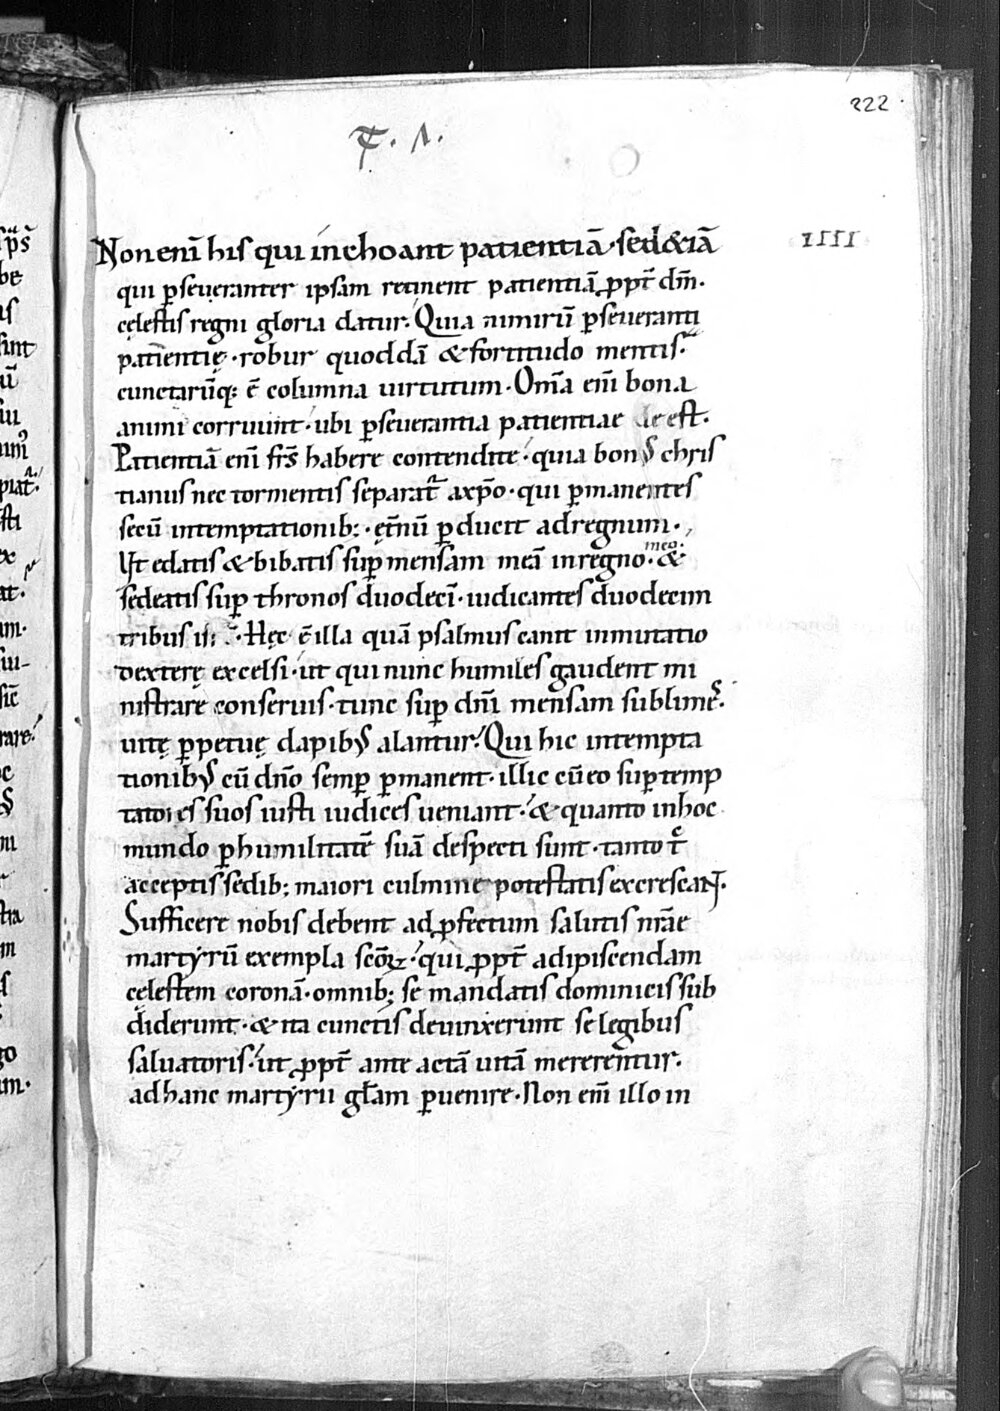 222
T. A.
Non enī his qui inchoant patientiā · sed &iā
IIII
qui ꝑseueranter ipsam retinent patientiā ꝓpt̄ dm̄ ·
cęlestis regni gloria datur. Quia nimirū ꝑseueranti
patientię · robur quoddā & fortitudo mentis .
cunctarūq; ē columna uirtutum · Om̄a eni̅ bona
animi corruunt · ubi ꝑseuerantia patientiae de est ·
Patientiā eni̅ frs̄ habere contendite · quia bonꝰ chris
tianus nec tormentis separat̄ axp̄o · qui ꝑmanentes
secū intemptationib; · et̄nū ꝑducit adregnum ·
Ut edatis & bibatis sup̄ mensam meā inregno meo · &
sedeatis sup̄ thronos duodeci̅ · iudicantes duodecim
tribus isr̄ł · Hęc ē illa quā psalmus canit inmutatio
dexterę excelsi · ut qui nunc humiles gaudent mi
nistrare conseruis · tunc sup̄ dn̄i mensam sublimeſ ·
uitę ꝑpetuę dapibꝰ alantur. Qui hic intempta
tionibꝰ cū dn̄o semꝑ ꝑmanent · illic cū eo sup̄ temp
tatores suos iusti iudices ueniant · & quanto inhoc
mundo ꝑ humilitatē suā despecti sunt · tanto t̄c
acceptis sedib; maiori culmine potestatis excrescanт ·
Sufficere nobis debent ad ꝓfectum salutis nr̄ae
martyrū exempla sc̄oꝝ · qui ꝓpt̄ adipiscendam
cęlestem coronā · omnib; se mandatis dominicis sub
diderunt · & ita cunctis deuinxerunt se legibus
saluatoris · ut ꝓpt̄ ante actā uitā mererentur ·
adhanc martyrii gl̄am ꝑuenire · Non eni̅ illo in